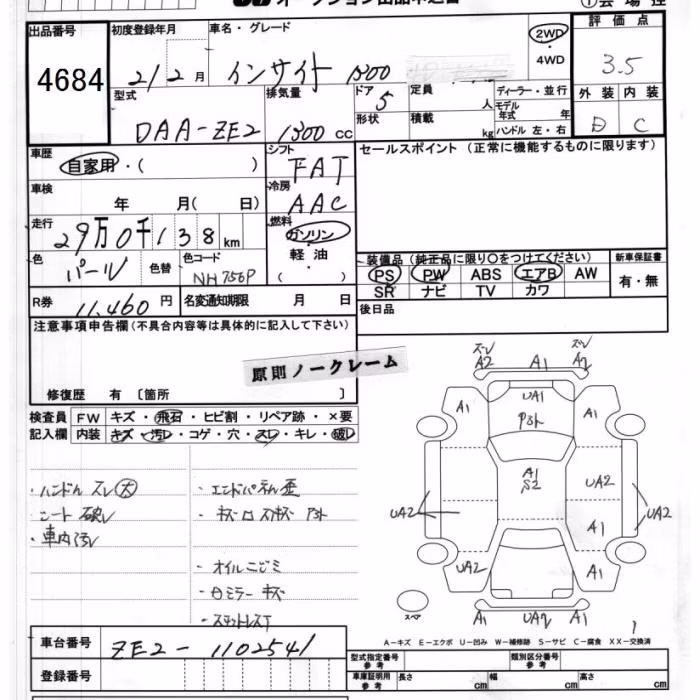 出品番号
4684
初度登録年月
21 2 月
車名・グレード
インサイト 1300
2WD
・
4WD
評価点
3.5
外装 内装
D C
型式
DAA-ZE2
排気量
1300 cc
ドア
5
形状
定員
人
積載
kg
ディーラー・並行
モデル年式 年
ハンドル 左・右
車歴
自家用・( )
車検
年 月( 日)
シフト
FAT
冷房
AAC
セールスポイント (正常に機能するものに限ります)
走行
29万0千138 km
燃料
ガソリン
軽油
( )
色
パール
色替
色コード
NH756P
装備品 (純正品に限り〇をつけてください)
PS PW ABS エアB AW
SR ナビ TV カワ
新車保証書
有・無
R券
11,460 円
名変通知期限 月 日
後日品
注意事項申告欄 (不具合内容等は具体的に記入して下さい)
原則ノークレーム
修復歴 有 [箇所 ]
検査員記入欄
FW キズ・飛石・ヒビ割・リペア跡・×要
内装 キズ・汚レ・コゲ・穴・スレ・キレ・破レ
・ハンドル スレ大
・シート 破レ
・車内汚レ
・エンドパネル 歪
・オイルニジミ
・ロミラー キズ
スレ
A2
A1
スレ
A2
A1
UA1
A1
A1
S2
UA2
UA2
UA2
A1
UA2
A1
スペア
A1
UA2
A1
A-キズ E-エクボ U-凹み W-補修跡 S-サビ C-腐食 XX-交換済
車台番号
ZE2-1102541
登録番号
型式指定番号 参考
類別区分番号 参考
車庫証明用 参考
長さ cm
幅 cm
高さ cm